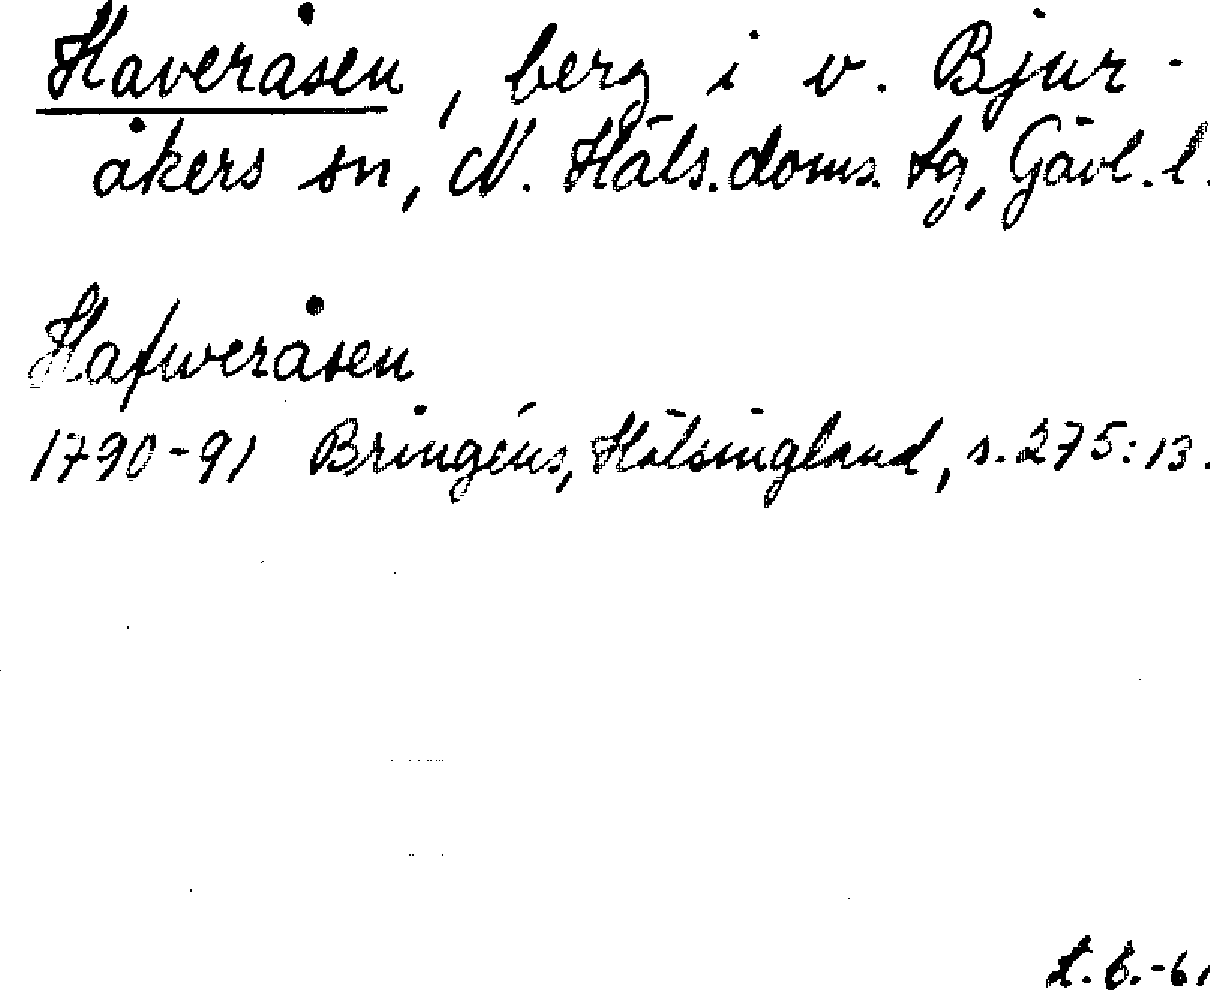 Haveråsen, berg i v. Bjur-
åkers sn, N. Häls. doms. tg, Gävl. l.
Hafweråsen
1790-91 Bringéus, Hälsingland, s. 275:13.